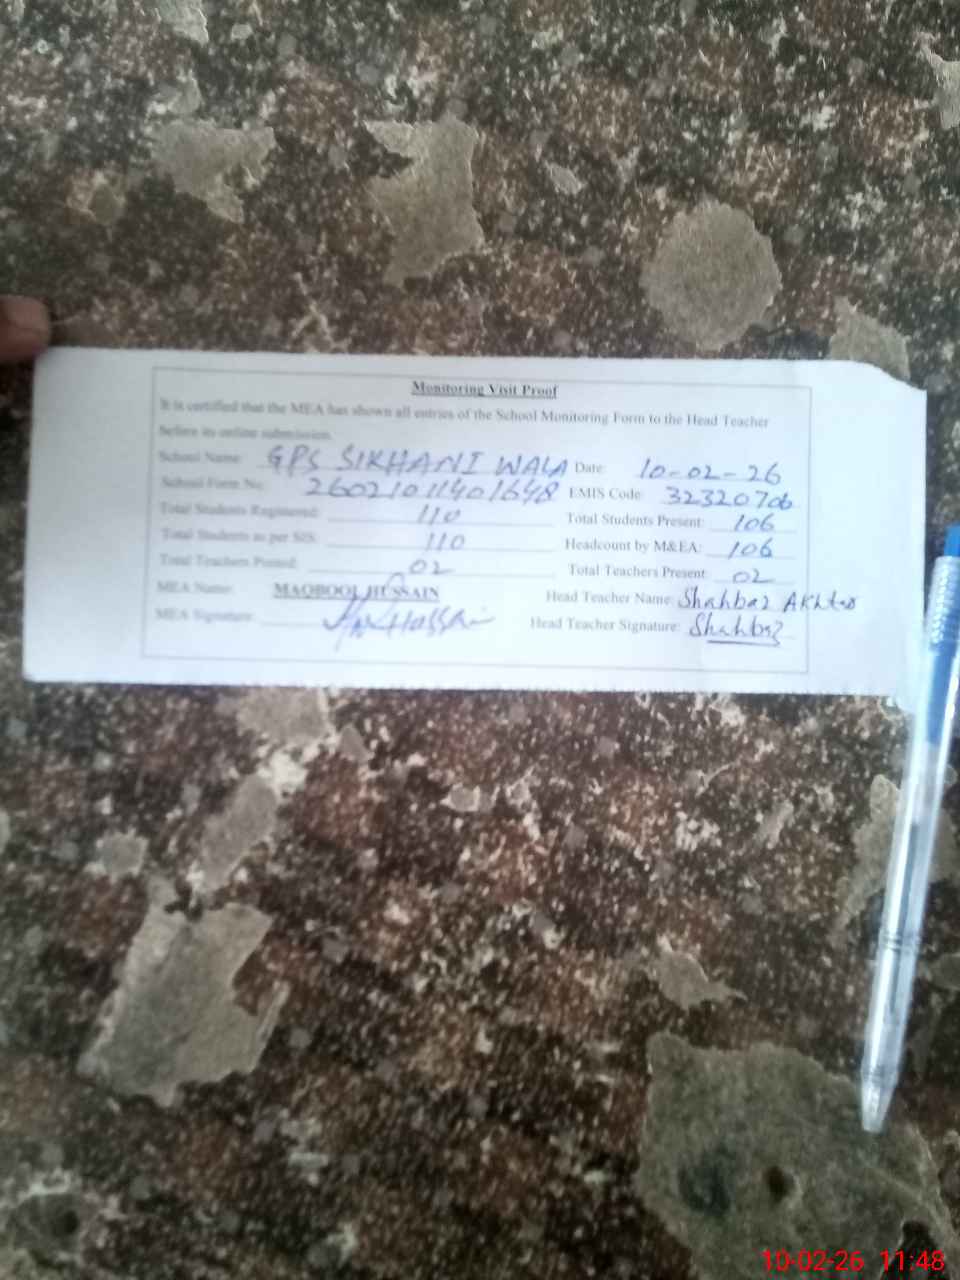 Monitoring Visit Proof
It is certified that the MEA has shown all entries of the School Monitoring Form to the Head Teacher
before its online submission.
School Name: GPS SIKHANI WALA Date: 10-02-26
School Form No: 26021011401648 EMIS Code: 32320706
Total Students Registered: 110 Total Students Present: 106
Total Students as per SIS: 110 Headcount by M&EA: 106
Total Teachers Posted: 02 Total Teachers Present: 02
MEA Name: MAQBOOL HUSSAIN Head Teacher Name: Shahbaz Akhtar
MEA Signature: Hussain Head Teacher Signature: Shahbaz
10-02-26 11:48